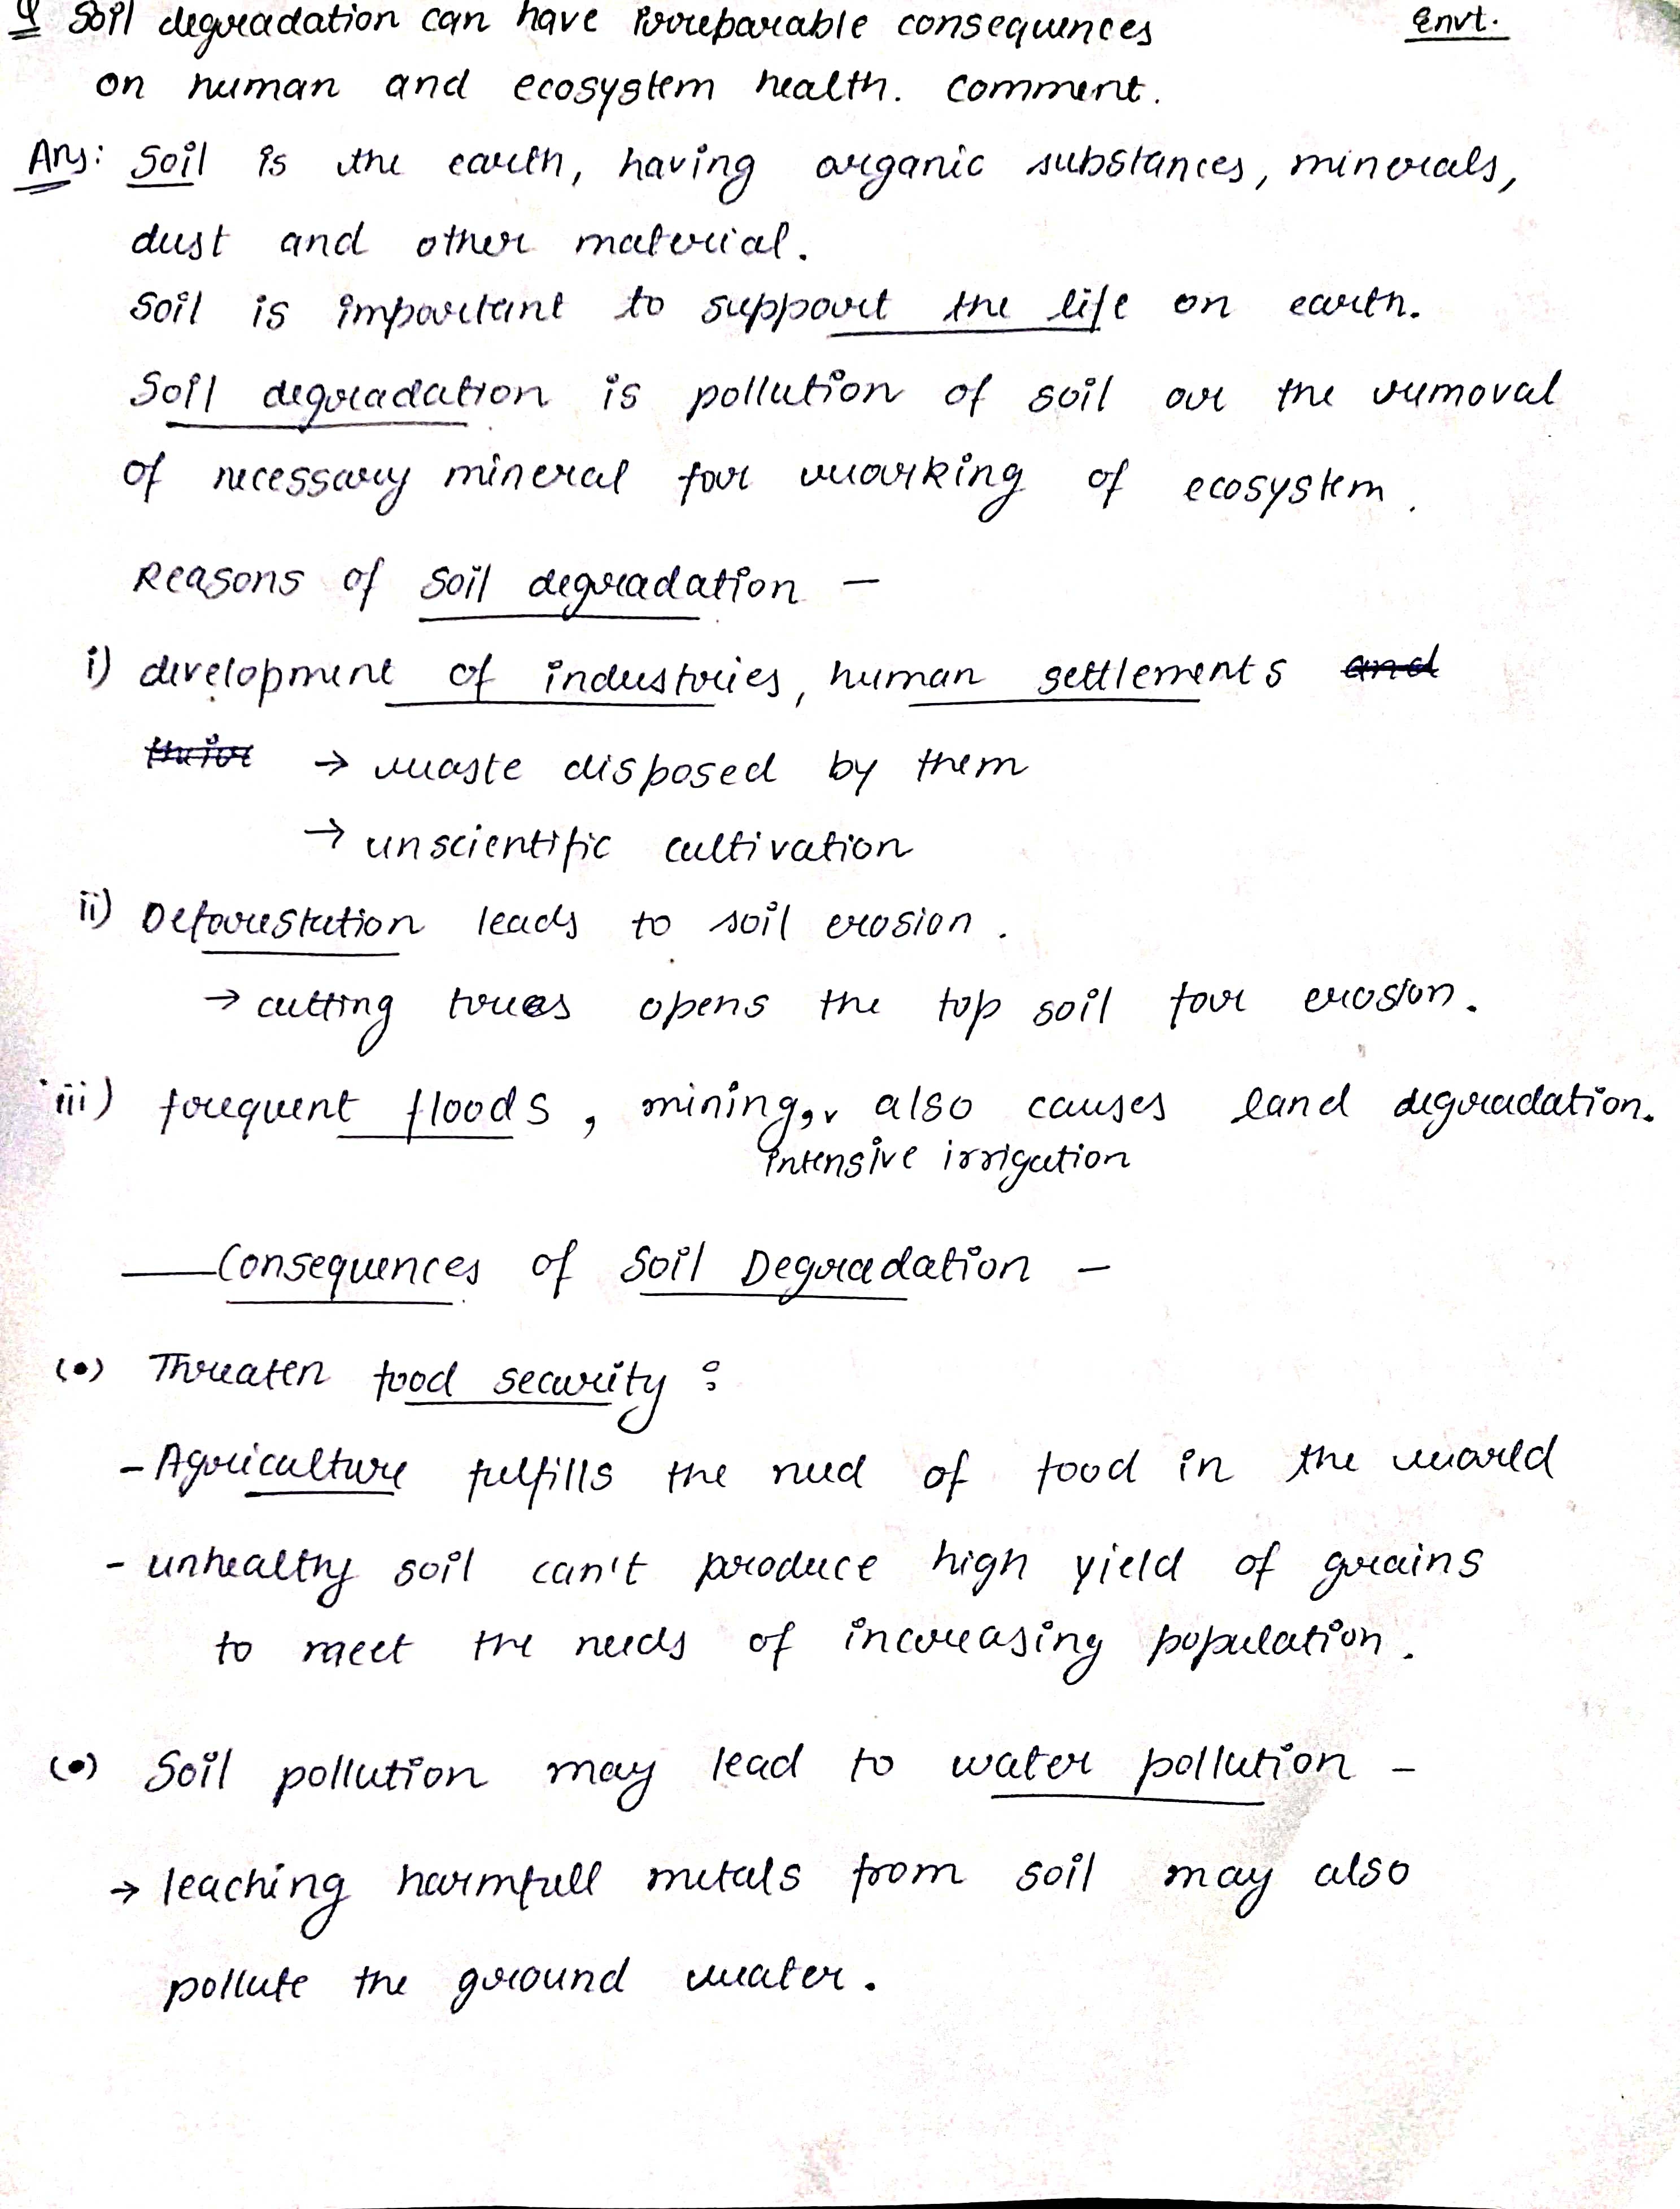 Q Soil degradation can have irreparable consequences
Envt.
on human and ecosystem health. Comment.
Ans: Soil is the earth, having organic substances, minerals,
dust and other material.
Soil is important to support the life on earth.
Soil degradation is pollution of soil or the removal
of necessary mineral for working of ecosystem.
Reasons of soil degradation –
i) development of industries, human settlements and
→ waste disposed by them
→ unscientific cultivation
ii) Deforestation leads to soil erosion.
→ cutting trees opens the top soil for erosion.
iii) frequent floods, mining, also causes land degradation.
intensive irrigation
Consequences of Soil Degradation –
(•) Threaten food security :
- Agriculture fulfills the need of food in the world
- unhealthy soil can't produce high yield of grains
to meet the needs of increasing population.
(•) Soil pollution may lead to water pollution –
→ leaching harmfull metals from soil may also
pollute the ground water.